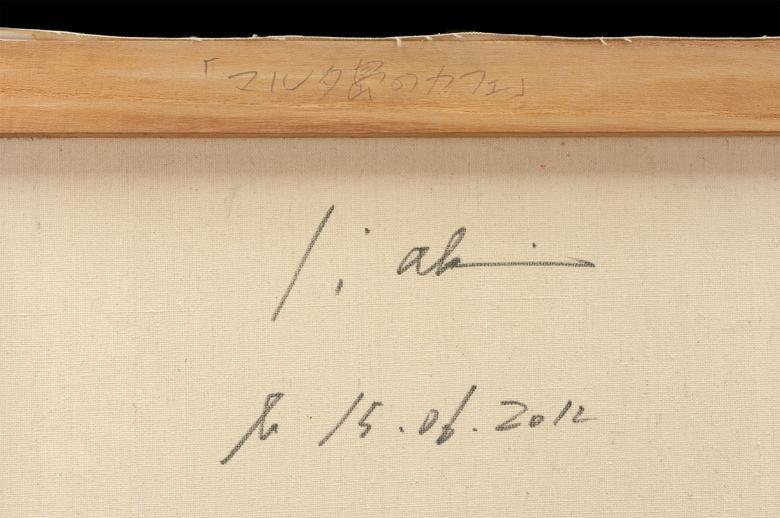 「マルタ島のカフェ」
le 15.06.2012